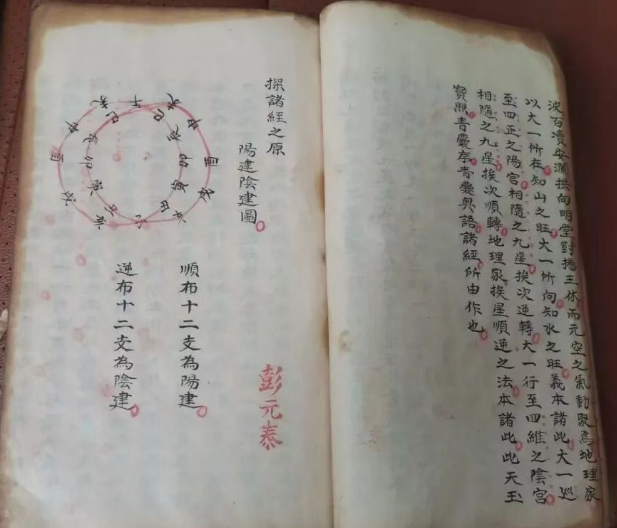 波百凟安瀾拱向明堂對揚王休而元空之氣動聚焉地理家
以大一所在知山之旺大一所向知水之旺義本諸此大一廵
至四正之陽宮相隨之九星挨次逆轉大一行至四維之陰宮
相隨之九星挨次順轉地理家挨星順逆之法本諸此此天玉
寶照青囊奧語諸經所由作也
探諸經之原
陽建陰建圖
順布十二支為陽建
逆布十二支為陰建
彭元泰